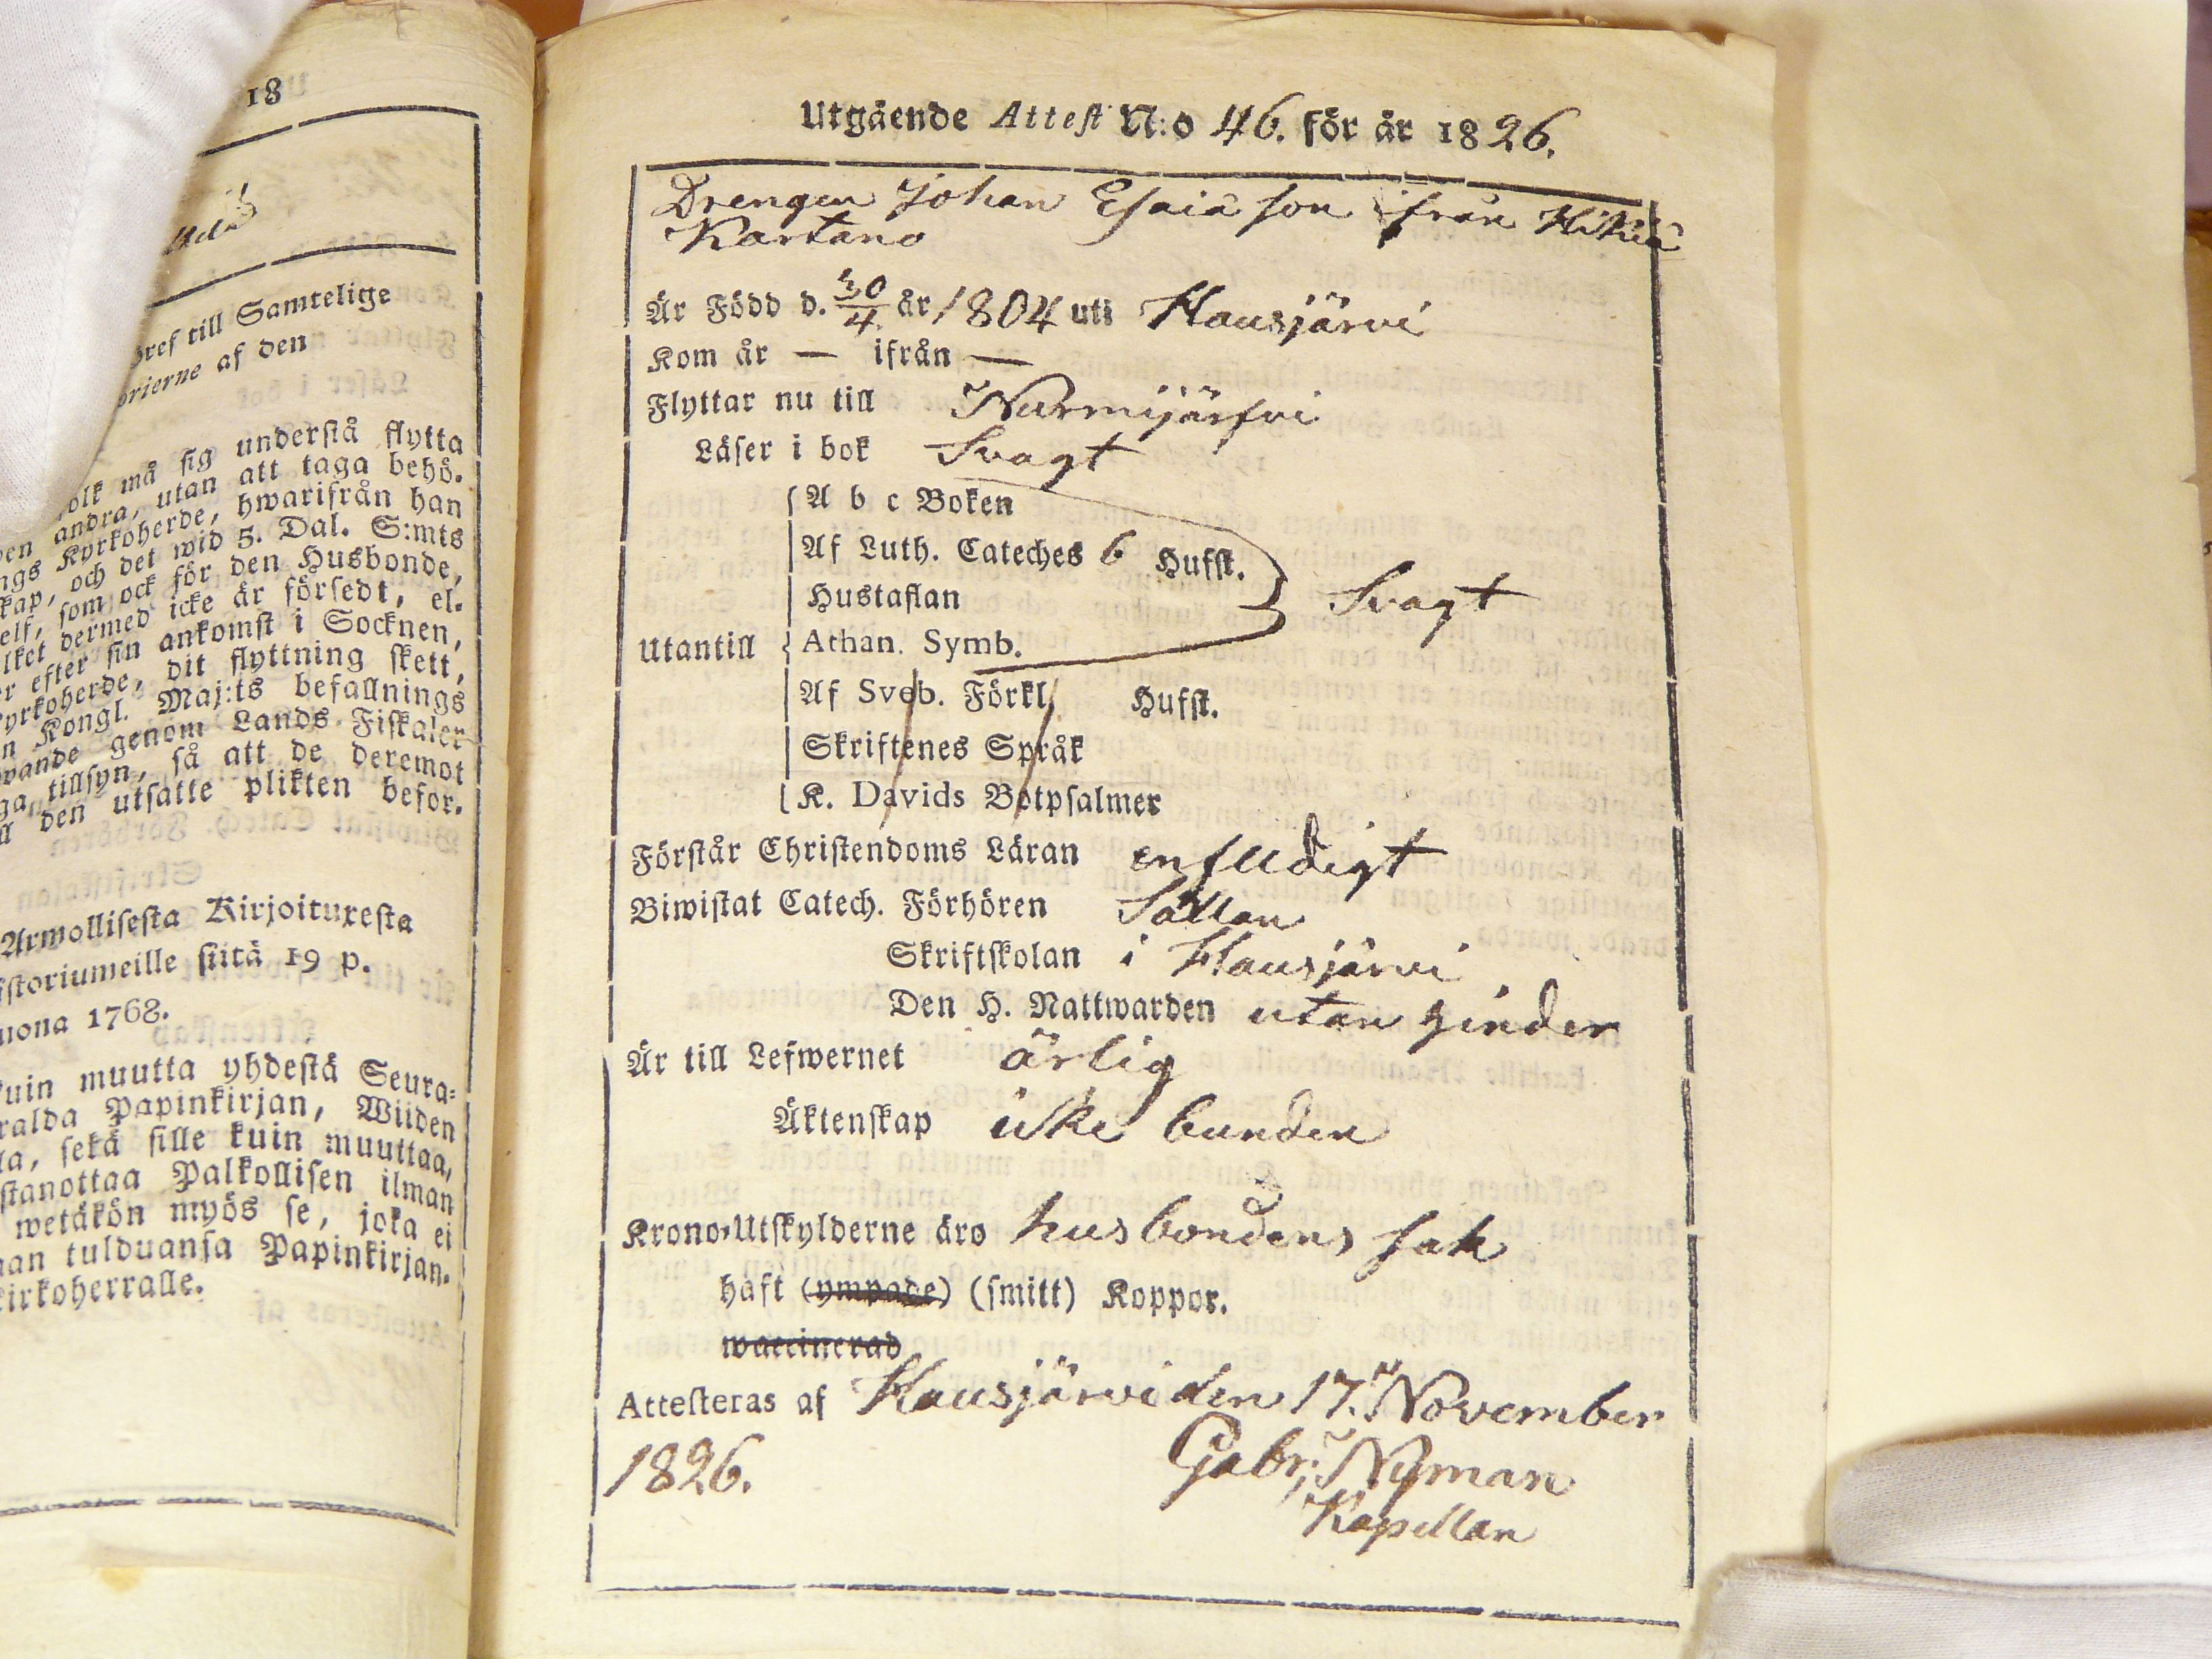 18
bref till Samtelige
orierne af den
olk må sig understå flytta
en andra, utan att taga behö-
ngs Kyrkoherde, hwarifrån han
kap, och det wid 5. Dal. S:mts
elf, som ock för den Husbonde,
lket dermed icke är försedt, el-
r efter sin ankomst i Socknen,
yrkoherde, dit flyttning skett,
n Kongl. Maj:ts befallnings
wande genom Lands Fiskaler
ga tillsyn, så att de deremot
ll den utsatte plikten befor-
Armollisesta Kirjoituxesta
istoriumeille siitä 19 p.
uona 1768.
uin muutta yhdestä Seura-
ralda Papinkirjan, Wiiden
la, sekä sille kuin muuttaa,
stanottaa Palkollisen ilman
wetäkön myös se, joka ei
an tulduansa Papinkirjan-
kirkoherralle.
Utgående Attest N:o 46. för år 1826.
Drengen Johan Esaiä son ifrån Hikiä
Kartano
Är Född d. 30/4 år 1804 uti Hausjärvi
Kom år — ifrån —
Flyttar nu till Nurmijärfvi
Läser i bok Svagt
A b c Boken
Af Luth. Cateches 6 Hufst.
Hustaflan Svagt
Utantill Athan. Symb.
Af Sveb. Förkl. Hufst.
Skriftenes Språk
K. Davids Botpsalmer
Förstår Christendoms Läran enfaldigt
Biwistat Catech. Förhören Sällan
Skriftskolan i Hausjärvi
Den H. Nattwarden utan hinder
Är till Lefwernet ärlig
Äktenskap icke bunden
Krono-Utskylderne äro husbondens sak
haft (ympade) (smitt) Koppor.
waccinerad
Attesteras af Hausjärvi den 17. November
1826. Gabr: Nyman
Kapellan